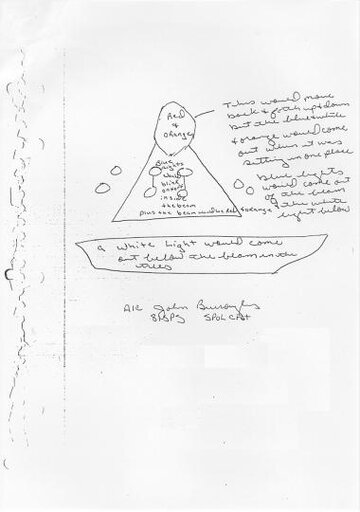 Red
&
orange
This would move
back & forth up & down
but the blue & white
& orange would come
out when it was
sitting in one place
Blue
lights
would
blink
on & off
inside
the beam
plus the beam would be red & orange
Blue lights
would come out
of the beam
& the white
light below
a white light would come
out below the beam in the
trees
A1C John Burroughs
81 SPS